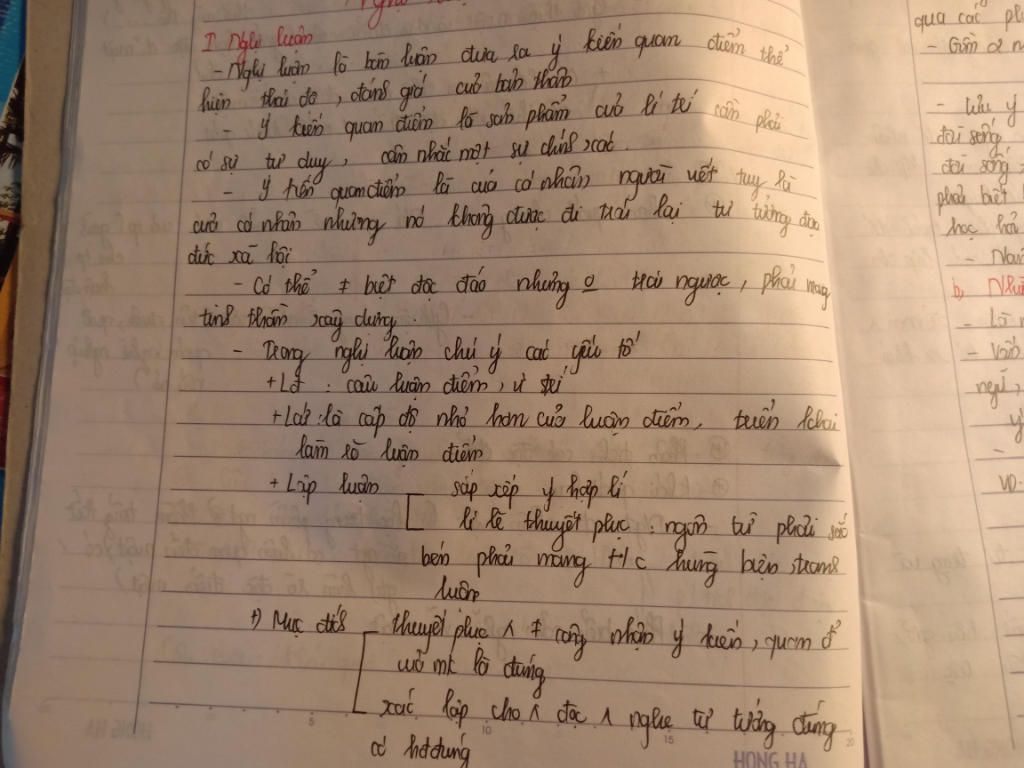 I. Nghị luận
- Nghị luận là bàn luận đưa ra ý kiến quan điểm thể
hiện thái độ, đánh giá của bản thân
- Ý kiến quan điểm là sản phẩm của lí trí cần phải
có sự tư duy, cân nhắc một sự chính xác.
- Ý kiến quan điểm là của cá nhân người viết tuy là
của cá nhân nhưng nó không được đi trái lại tư tưởng đạo
đức xã hội
- Có thể ≠ biệt độc đáo nhưng o trái ngược, phải mang
tinh thần xây dựng.
- Trong nghị luận chú ý các yếu tố
+ Lđ : câu luận điểm, vị trí
+ : là cấp độ nhỏ hơn của luận điểm, triển khai
làm rõ luận điểm
+ Lập luận sắp xếp ý hợp lí
lí lẽ thuyết phục : ngôn từ phải sắc
bén phải mang t/c hùng biện, tranh
luận
+) Mục đích thuyết phục ∧ ≠ công nhận ý kiến, quan đ
của mk là đúng
xác lập cho ∧ đọc ∧ nghe tư tưởng đúng
có hđ đúng
HONG HA
qua các
- Gần
- Lưu ý
đời sống
đời sống
phải biết
học hỏi
b,
- Là
- Vấn
5
15
20
HONG HA